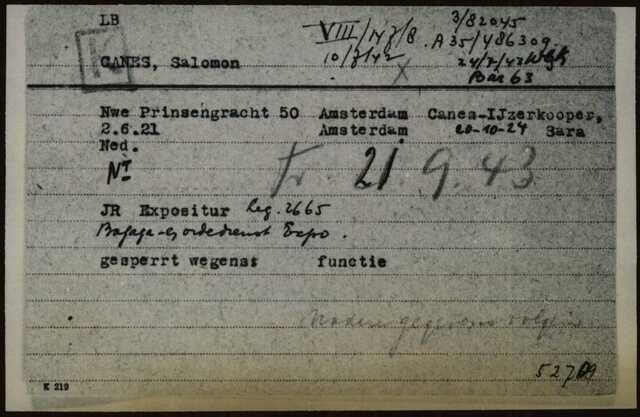 LB
VIII/14/8/8. 3/82045
A35/486309
K
CANES, Salomon 10/8/42 X 24/7/43
Bar 63
Nwe Prinsengracht 50 Amsterdam Canes-IJzerkooper,
2.6.21 Amsterdam 20-10-24 Sara
Ned.
NT
Tr. 21.9.43
JR Expositur Reg. 2665
Bagage- ordedienst Expo.
gesperrt wegens: functie
Nadere gegevens volgen
K 219